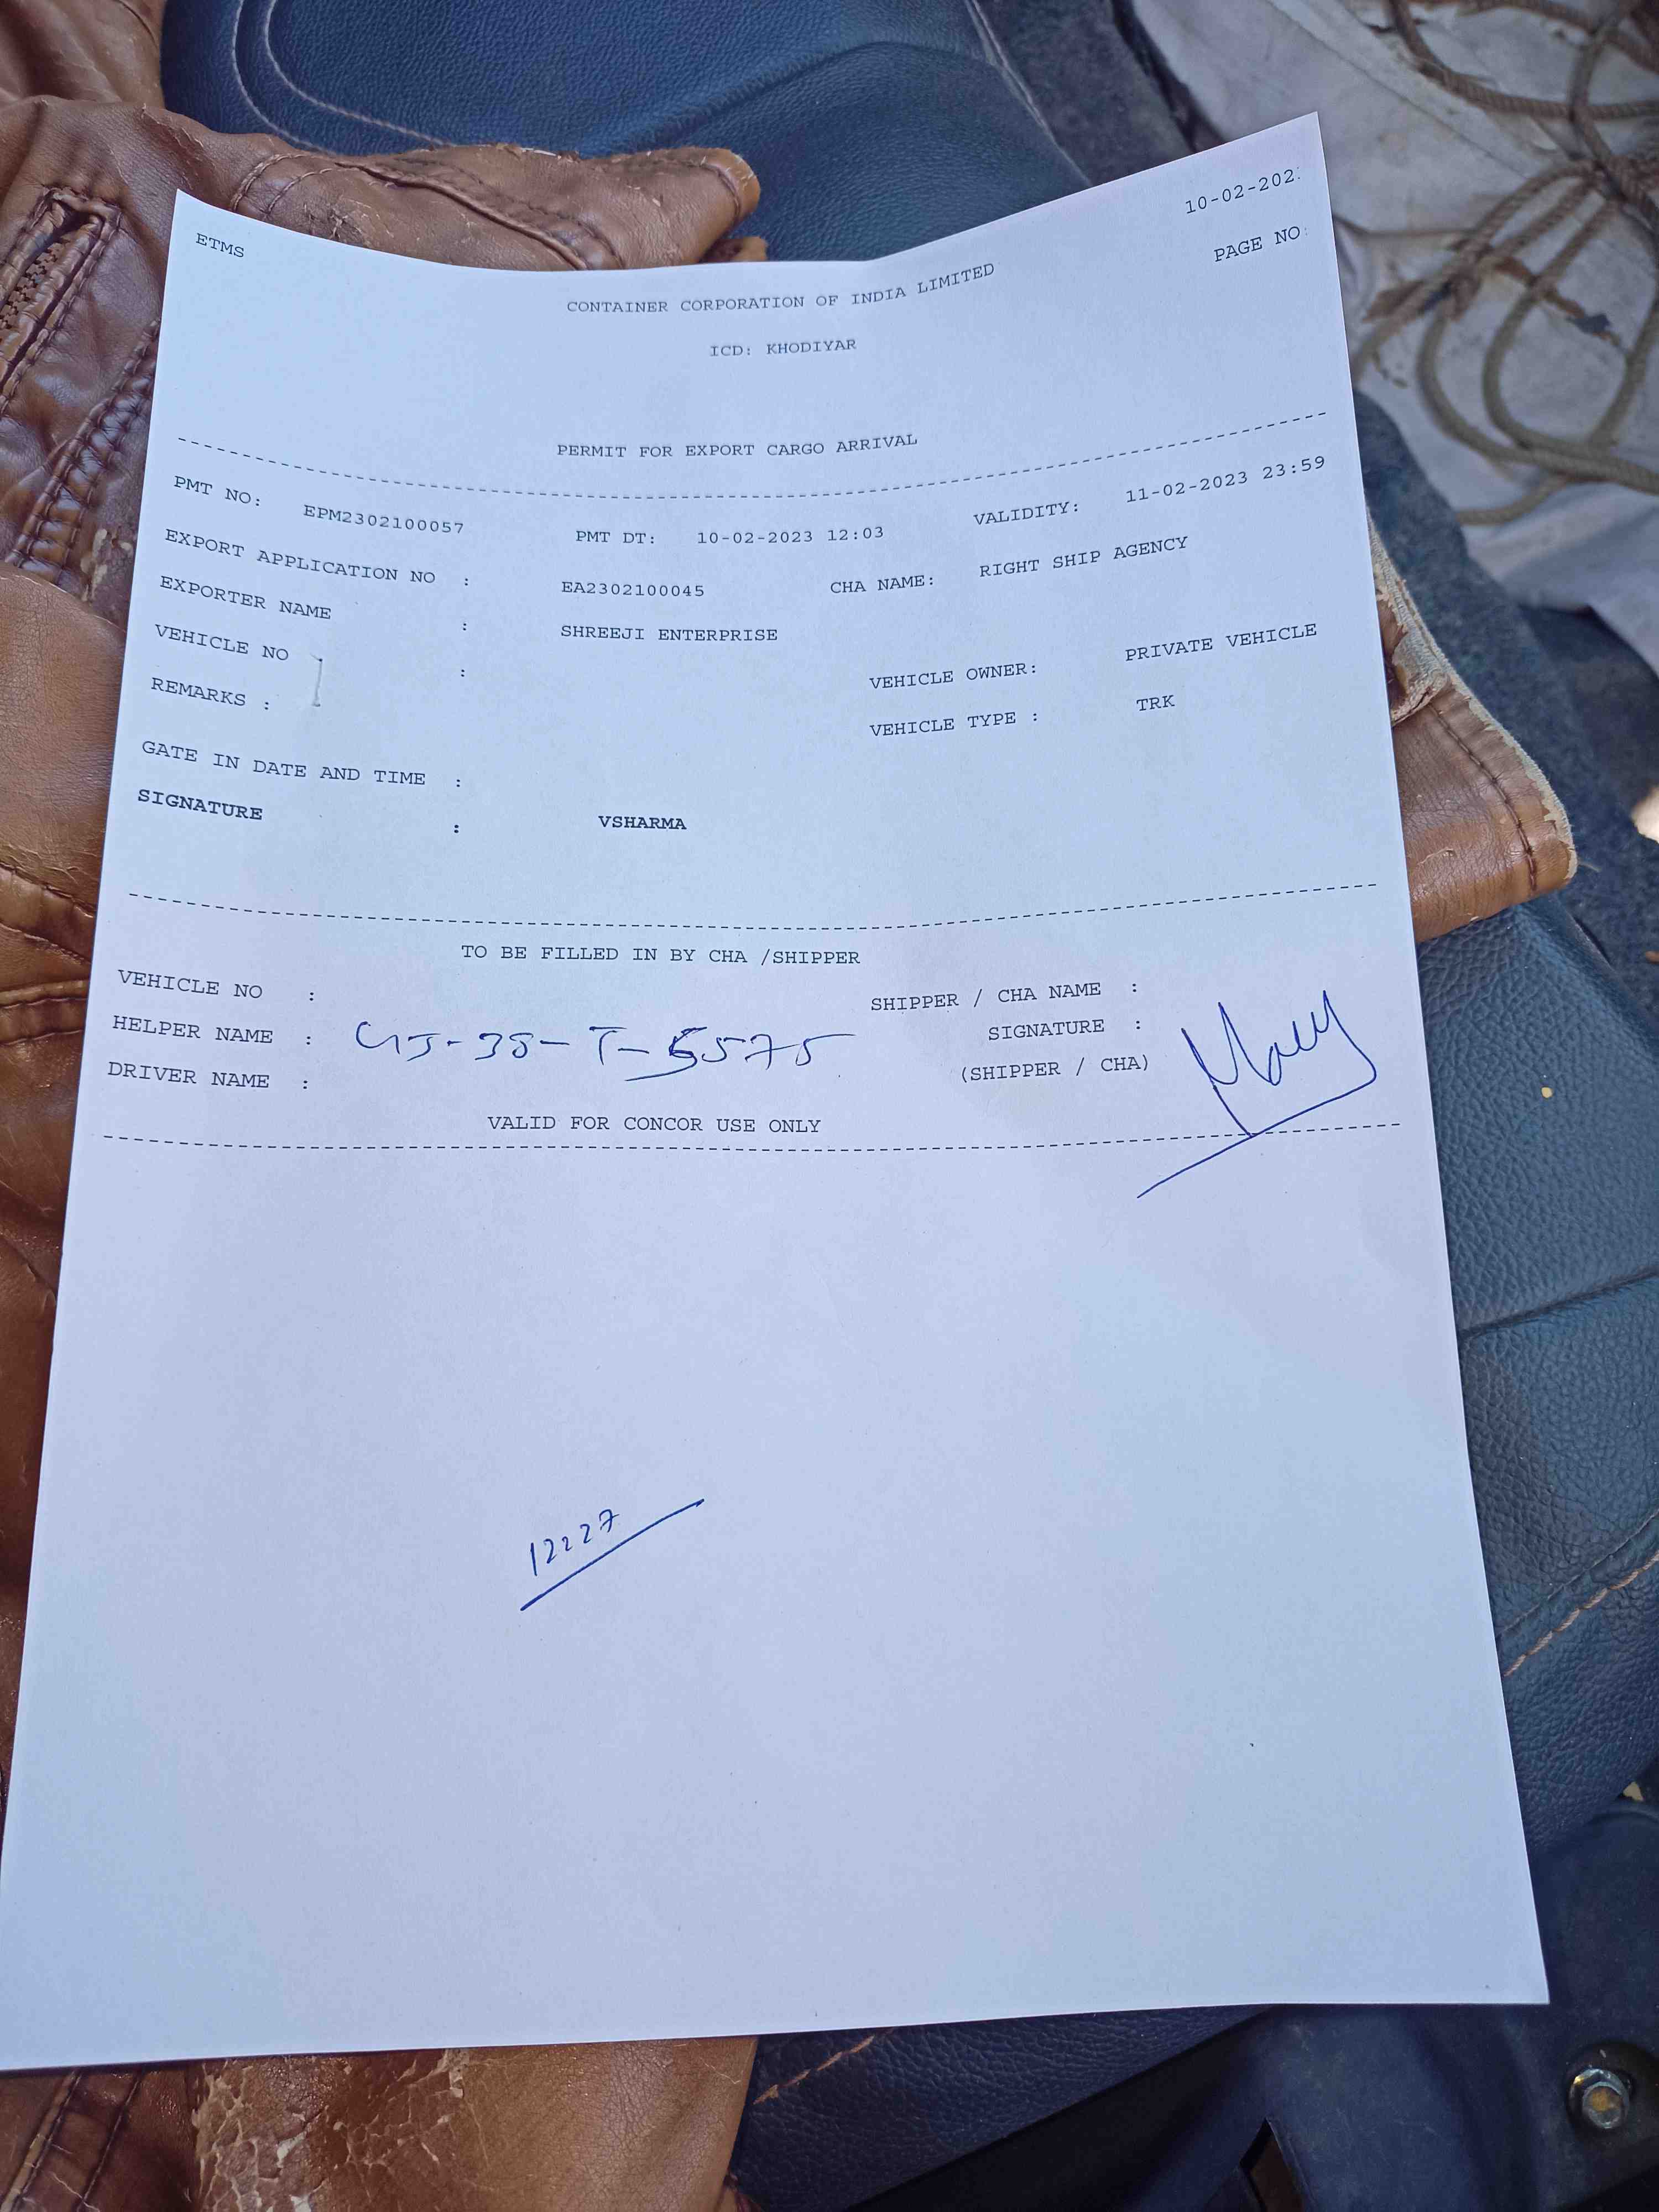 ETMS 10-02-202
PAGE NO:
CONTAINER CORPORATION OF INDIA LIMITED
ICD: KHODIYAR
PERMIT FOR EXPORT CARGO ARRIVAL
PMT NO: EPM2302100057 PMT DT: 10-02-2023 12:03 VALIDITY: 11-02-2023 23:59
EXPORT APPLICATION NO : EA2302100045 CHA NAME: RIGHT SHIP AGENCY
EXPORTER NAME : SHREEJI ENTERPRISE
VEHICLE NO : VEHICLE OWNER: PRIVATE VEHICLE
REMARKS : VEHICLE TYPE : TRK
GATE IN DATE AND TIME :
SIGNATURE : VSHARMA
TO BE FILLED IN BY CHA /SHIPPER
VEHICLE NO : SHIPPER / CHA NAME :
HELPER NAME : GJ-38-T-5575 SIGNATURE :
DRIVER NAME : (SHIPPER / CHA)
VALID FOR CONCOR USE ONLY
12227